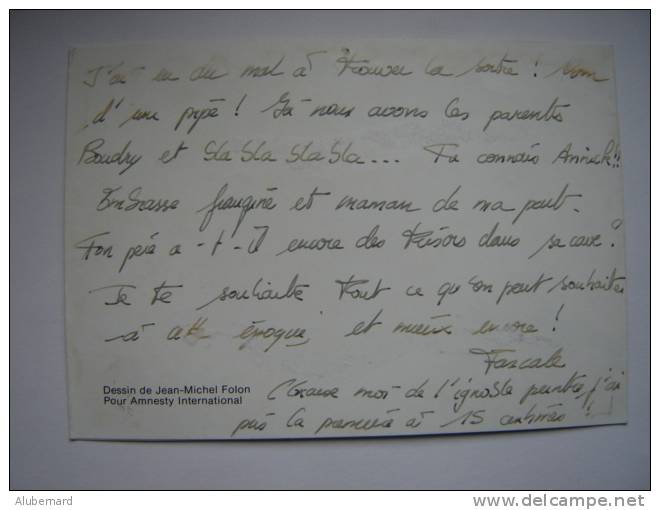 J'ai eu du mal à trouver la sortie ! Nom
d'une pipe ! Là nous avons les parents
Boudry et bla bla bla bla... Tu connais Annick !!
Embrasse frangine et maman de ma part.
Ton père a-t-il encore des trésors dans sa cave ?
Je te souhaite tout ce qu'on peut souhaiter
à cette époque, et mieux encore !
Pascale
Dessin de Jean-Michel Folon
Pour Amnesty International
moi de l'ignoble peintre, j'ai
pris la première à 15 centimes !
Alubernard
delcampe.net